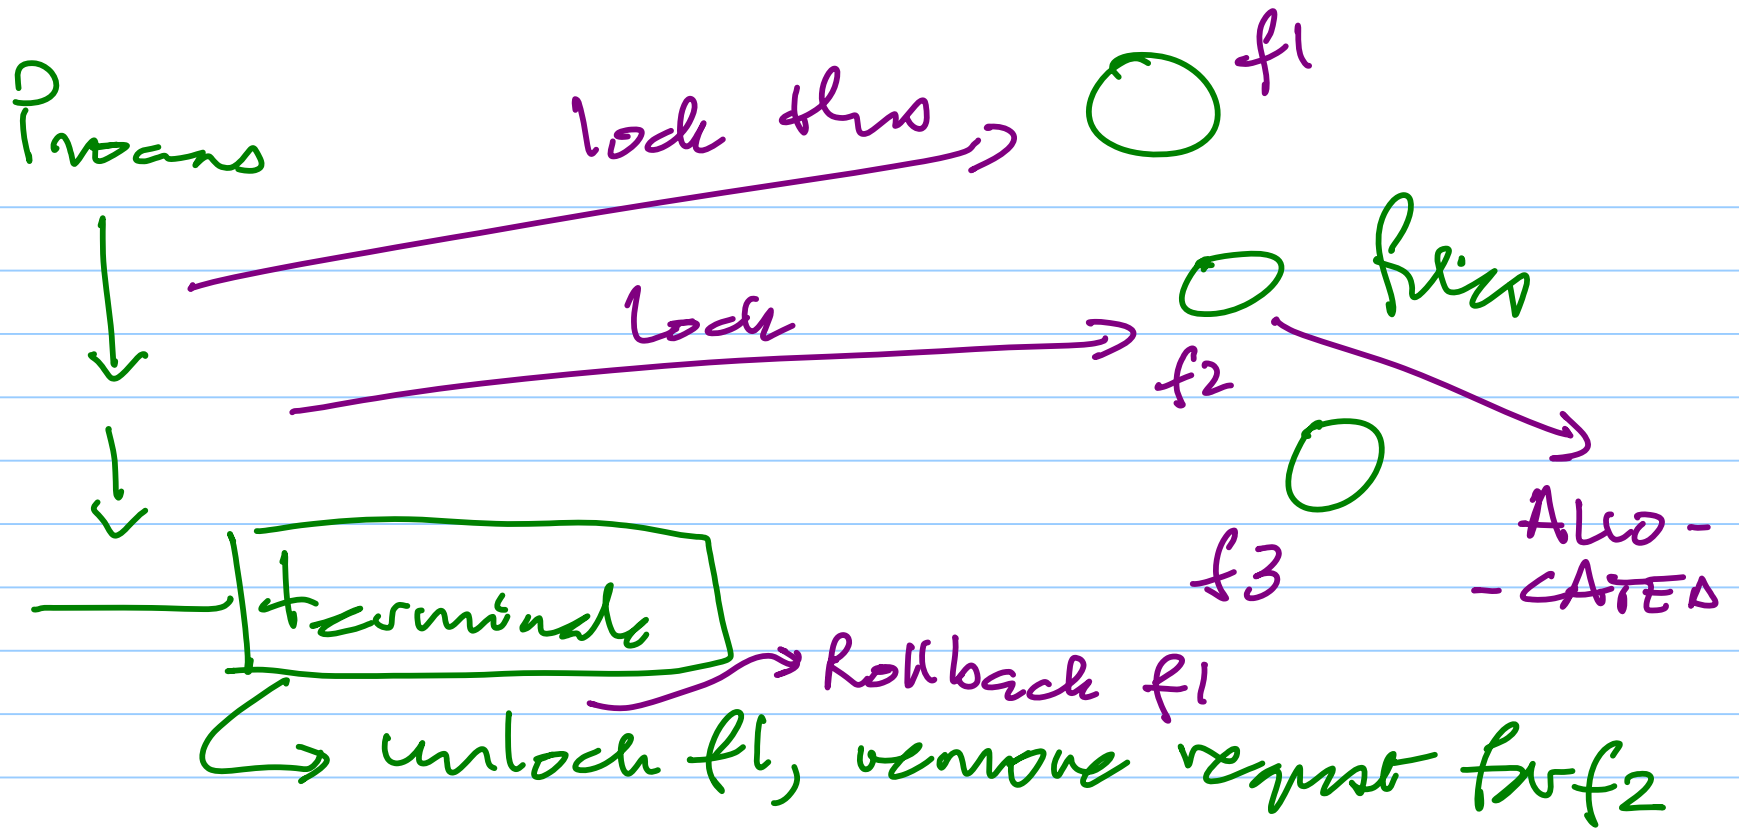 f1
Process
lock this
files
lock
f2
ALLO-
-CATED
f3
terminate
Rollback f1
unlock f1, remove request for f2